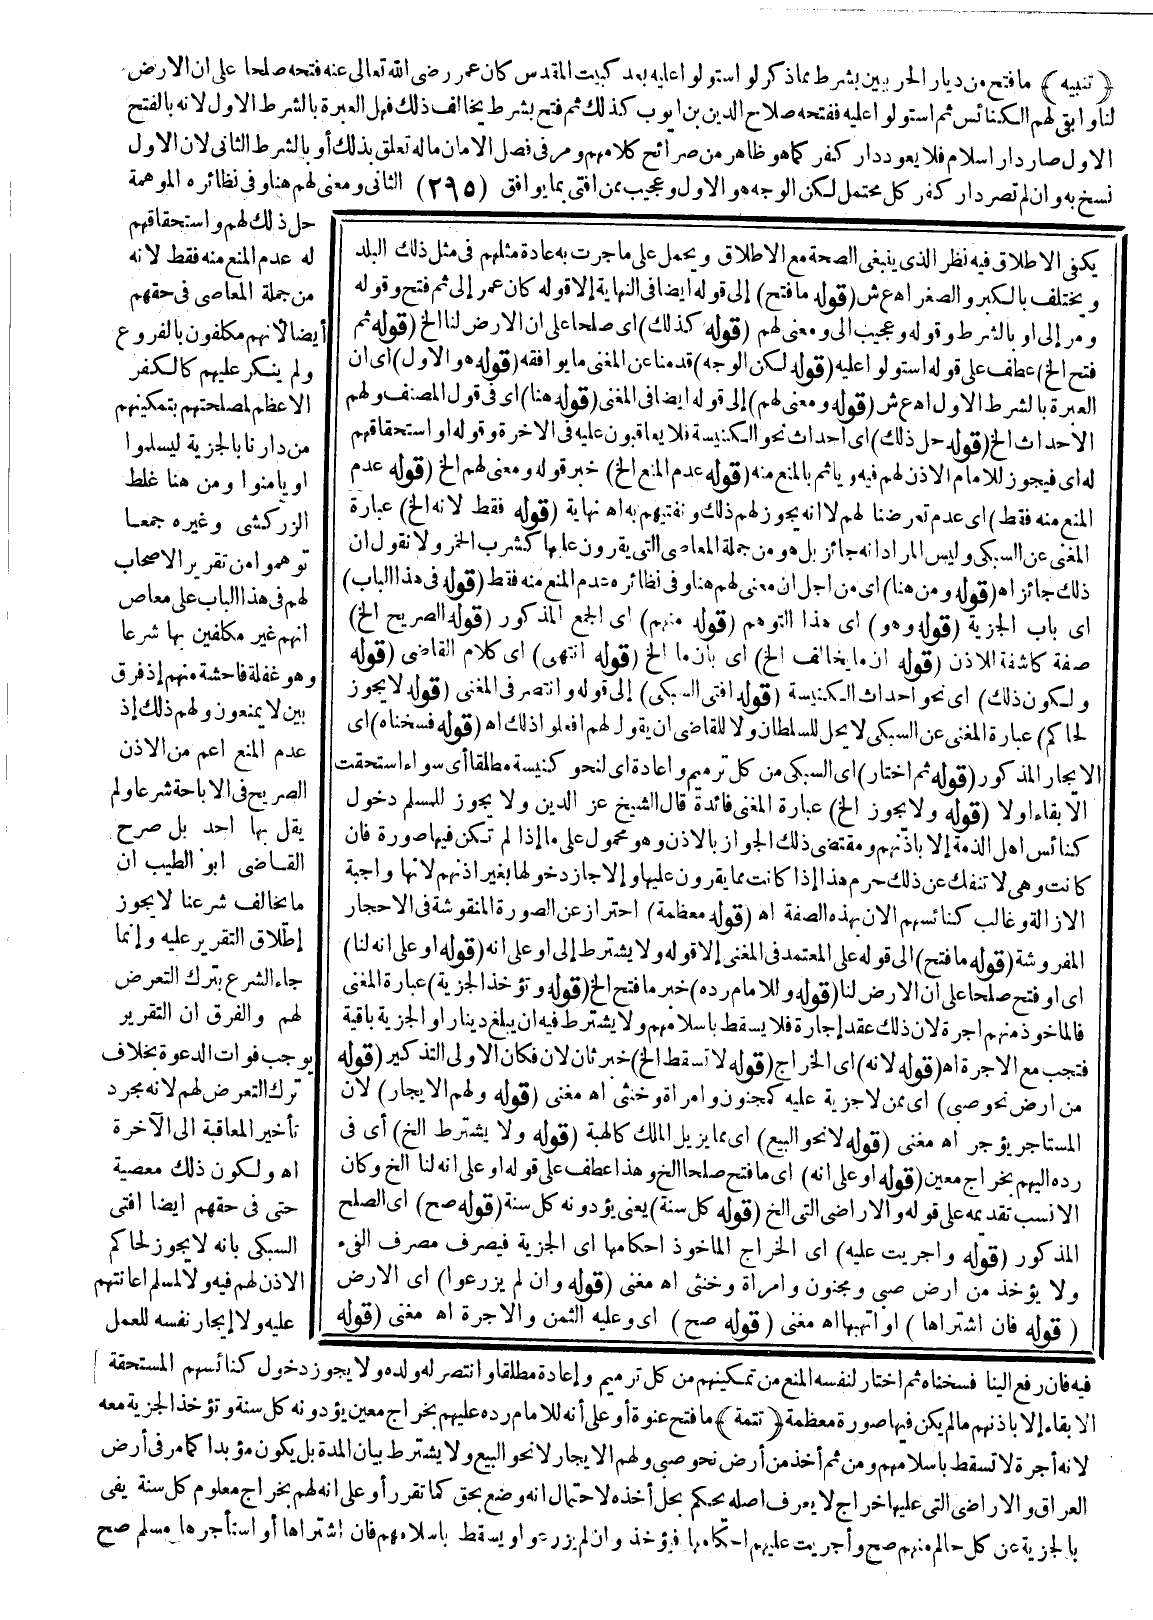 ﴿تنبيه﴾ ما فتح من ديار الحربيين بشرط مما ذكر لو استولوا عليه بعد كبيت المقدس كان عمر رضى الله تعالى عنه فتحه صلحا على ان الارض
لنا وابقى لهم الكنائس ثم استولوا عليه ففتحه صلاح الدين بن ايوب كذلك ثم فتح بشرط يخالف ذلك فهل العبرة بالشرط الاول لانه بالفتح
الاول صار دار اسلام فلا يعود دار كفر كما هو ظاهر من صرائح كلامهم ومر فى فصل الامان ماله تعلق بذلك أو بالشرط الثانى لان الاول
نسخ به وان لم تصر دار كفر كل محتمل لكن الوجه هو الاول وعجيب ممن افتى بما يوافق (٢٩٥) الثانى ومعنى لهم هنا وفى نظائره الموهمة
حل ذلك لهم واستحقاقهم
له عدم المنع منه فقط لانه
من جملة المعاصى فى حقهم
أيضا لأنهم مكلفون بالفروع
ولم ينكر عليهم كالكفر
الاعظم لمصلحتهم بتمكينهم
من دارنا بالجزية ليسلموا
او يأمنوا ومن هنا غلط
الزركشى وغيره جمعا
توهموا من تقرير الاصحاب
لهم فى هذا الباب على معاص
انهم غير مكلفين بها شرعا
وهو غفلة فاحشة منهم إذ فرق
بين لا يمنعون ولهم ذلك إذ
عدم المنع اعم من الاذن
الصريح فى الاباحة شرعا ولم
يقل بها احد بل صرح
القاضى ابو الطيب ان
ما يخالف شرعنا لا يجوز
إطلاق التقرير عليه وإنما
جاء الشرع بترك التعرض
لهم والفرق ان التقرير
يوجب فوات الدعوة بخلاف
ترك التعرض لهم لانه مجرد
تأخير المعاقبة الى الآخرة
اه ولكون ذلك معصية
حتى فى حقهم ايضا افتى
السبكى بانه لا يجوز لحاكم
الاذن لهم فيه ولا لمسلم اعانتهم
عليه ولا إيجار نفسه للعمل
يكفى الاطلاق فيه نظر الذى ينبغى الصحة مع الاطلاق ويحمل على ما جرت به عادة مثلهم فى مثل ذلك البلد
ويختلف بالكبر والصغر اه ع ش (قوله ما فتح) إلى قوله ايضا فى النهاية إلا قوله كان عمر إلى ثم فتح وقوله
ومر إلى او بالشرط وقوله وعجيب الى ومعنى لهم (قوله كذلك) اى صلحا على ان الارض لنا الخ (قوله ثم
فتح الخ) عطف على قوله استولوا عليه (قوله لكن الوجه) قدمنا عن المغنى ما يوافقه (قوله هو الاول) اى ان
العبرة بالشرط الاول اه ع ش (قوله ومعنى لهم) إلى قوله ايضا فى المغنى (قوله هنا) اى فى قول المصنف ولهم
الاحداث الخ (قوله حل ذلك) اى احداث نحو الكنيسة فلا يعاقبون عليه فى الاخرة وقوله او استحقاقهم
له اى فيجوز للامام الاذن لهم فيه ويأثم بالمنع منه (قوله عدم المنع الخ) خبر قوله ومعنى لهم الخ (قوله عدم
المنع منه فقط) اى عدم تعرضنا لهم لا انه يجوز لهم ذلك ونفتيهم به اه نهاية (قوله فقط لانه الخ) عبارة
المغنى عن السبكى وليس المراد انه جائز بل هو من جملة المعاصى التى يقرون عليها كشرب الخمر ولا نقول ان
ذلك جائز اه (قوله ومن هنا) اى من اجل ان معنى لهم هنا وفى نظائره عدم المنع منه فقط (قوله فى هذا الباب)
اى باب الجزية (قوله وهو) اى هذا التوهم (قوله منهم) اى الجمع المذكور (قوله الصريح الخ)
صفة كاشفة للاذن (قوله ان ما يخالف الخ) اى بأن ما الخ (قوله انتهى) اى كلام القاضى (قوله
ولكون ذلك) اى نحو احداث الكنيسة (قوله افتى السبكى) إلى قوله وانتصر فى المغنى (قوله لا يجوز
لحاكم) عبارة المغنى عن السبكى لا يحل للسلطان ولا للقاضى ان يقول لهم افعلوا ذلك اه (قوله فسخناه) اى
الايجار المذكور (قوله ثم اختار) اى السبكى من كل ترميم واعادة اى لنحو كنيسة مطلقا أى سواء استحقت
الابقاء اولا (قوله ولا يجوز الخ) عبارة المغنى فائدة قال الشيخ عز الدين ولا يجوز للمسلم دخول
كنائس اهل الذمة إلا باذنهم ومقتضى ذلك الجواز بالاذن وهو محمول على ما إذا لم تكن فيها صورة فان
كانت وهى لا تنفك عن ذلك حرم هذا إذا كانت مما يقرون عليها وإلا جاز دخولها بغير اذنهم لانها واجبة
الازالة وغالب كنائسهم الان بهذه الصفة اه (قوله معظمة) احتراز عن الصورة المنقوشة فى الاحجار
المفروشة (قوله ما فتح) الى قوله على المعتمد فى المغنى إلا قوله ولا يشترط إلى او على انه (قوله او على انه لنا)
اى او فتح صلحا على ان الارض لنا (قوله وللامام رده) خبر ما فتح الخ (قوله وتؤخذ الجزية) عبارة المغنى
فالمأخوذ منهم اجرة لان ذلك عقد إجارة فلا يسقط باسلامهم ولا يشترط فيه ان يبلغ دينارا والجزية باقية
فتجب مع الاجرة اه (قوله لانه) اى الخراج (قوله لا تسقط الخ) خبر ثان لان فكان الاولى التذكير (قوله
من ارض نحو صبى) اى ممن لا جزية عليه كمجنون وامراة وخنثى اه مغنى (قوله ولهم الايجار) لان
المستاجر يؤجر اه مغنى (قوله لا نحو البيع) اى مما يزيل الملك كالهبة (قوله ولا يشترط الخ) أى فى
رده اليهم بخراج معين (قوله او على انه) اى ما فتح صلحا الخ وهذا عطف على قوله او على انه لنا الخ وكان
الانسب تقديمه على قوله والاراضى التى الخ (قوله كل سنة) يعنى يؤدونه كل سنة (قوله صح) اى الصلح
المذكور (قوله واجريت عليه) اى الخراج المأخوذ احكامها اى الجزية فيصرف مصرف الفىء
ولا يؤخذ من ارض صبى ومجنون وامراة وخنثى اه مغنى (قوله وان لم يزرعوا) اى الارض
(قوله فان اشتراها) او اتهبها اه مغنى (قوله صح) اى وعليه الثمن والاجرة اه مغنى (قوله
فيه فان رفع الينا فسخناه ثم اختار لنفسه المنع من تمكينهم من كل ترميم وإعادة مطلقا وانتصر له ولده ولا يجوز دخول كنائسهم المستحقة
الابقاء إلا باذنهم ما لم يكن فيها صورة معظمة ﴿تتمة﴾ ما فتح عنوة أو على أنه للامام رده عليهم بخراج معين يؤدونه كل سنة وتؤخذ الجزية معه
لانه أجرة لا تسقط باسلامهم ومن ثم أخذ من أرض نحو صبى ولهم الايجار لا نحو البيع ولا يشترط بيان المدة بل يكون مؤبدا كما مر فى أرض
العراق والاراضى التى عليها خراج لا يعرف اصله يحكم بحل أخذه لاحتمال انه وضع بحق كما تقرر أو على انه لهم بخراج معلوم كل سنة يفى
بالجزية عن كل حالم منهم صح وأجريت عليهم احكامها فيؤخذ وان لم يزرعوا ويسقط باسلامهم فان اشتراها أو استأجرها مسلم صح